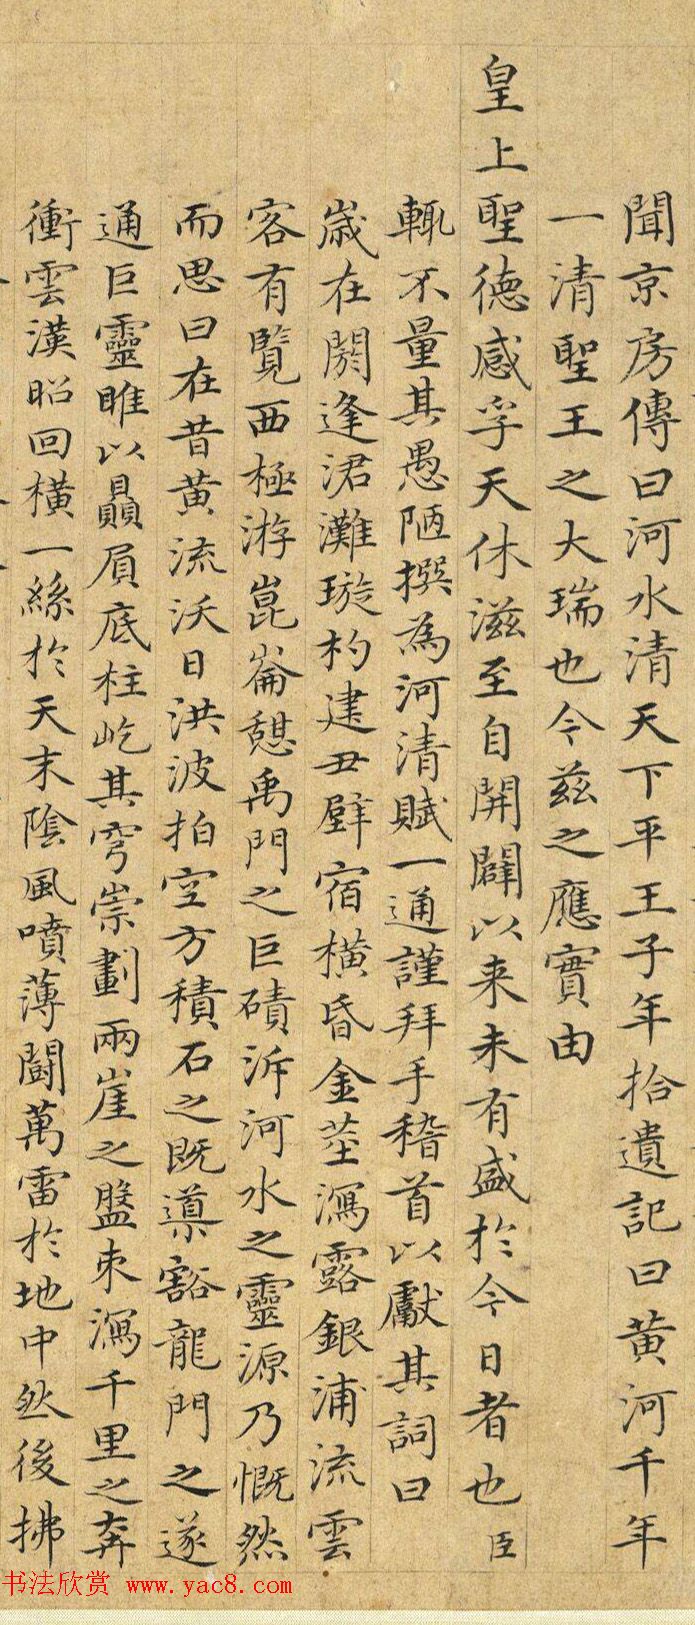 聞京房傳曰河水清天下平王子年拾遺記曰黄河千年
一清聖王之大瑞也今茲之應實由
皇上聖德感孚天休滋至自開闢以来未有盛於今日者也臣
輒不量其愚陋撰為河清賦一通謹拜手稽首以獻其詞曰
歲在閼逢涒灘璇杓建丑壁宿橫昏金莖瀉露銀浦流雲
客有覽西極游崑崙憇禹門之巨磧泝河水之靈源乃慨然
而思曰在昔黄流沃日洪波拍空方積石之既導豁龍門之遂
通巨靈雎以贔屓底柱屹其穹崇劃兩崖之盤束瀉千里之奔
衝雲漢昭回橫一絲於天末陰風噴薄鬭萬雷於地中然後拂
书法欣赏 www.yac8.com